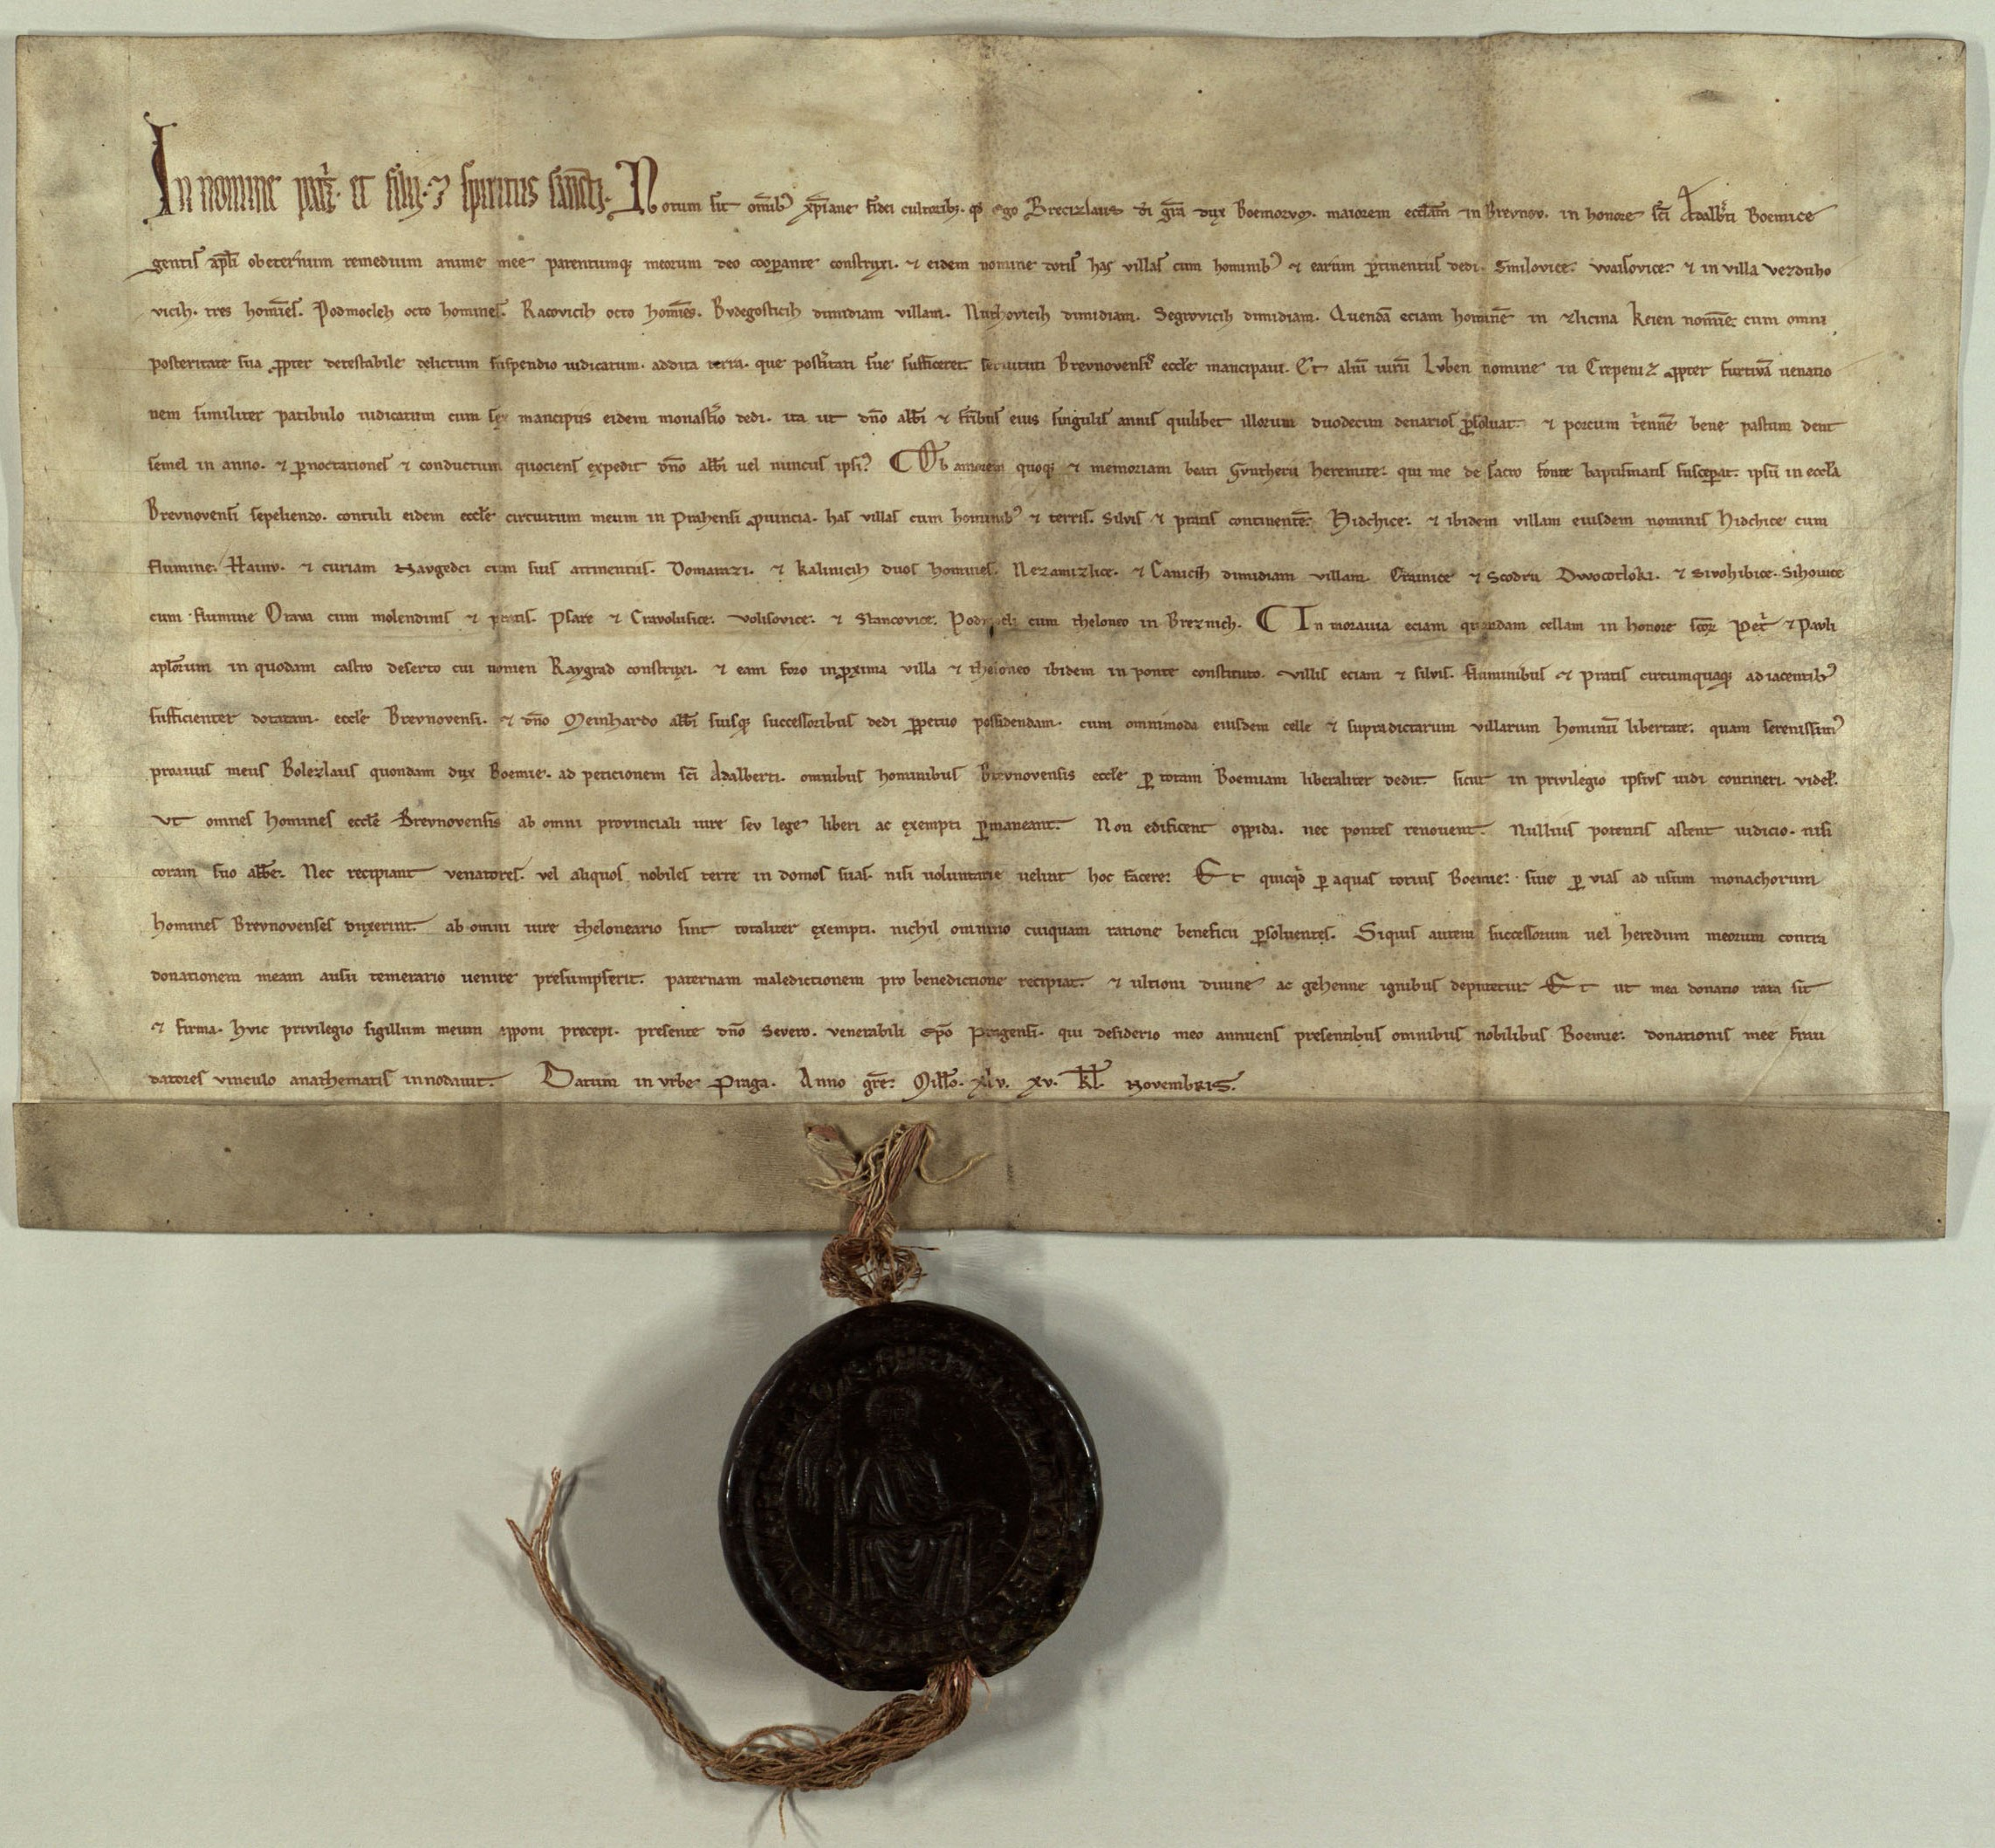 In nomine pat͛s· et filij· ⁊ spiritus sanctj· Notum sit om̅ib᾽ xp̅iane fidei cultorib;· qd̕ ego Brecizlaus di̅ gr̅a dux Boemorum· maiorem eccl̅am in Brevnov· in honore sc̅i Adalb̅ti Boemice
gentis ap̅li ob eternum remedium anime mee parentumq; meorum deo coop̲ante construxi· ⁊ eidem nomine dotis has villas cum hominib᾽ ⁊ earum p̲tinentiis dedi· Smilovice· ⁊ in villa Verduho
vicih· tres homi̅es· Podmocleh octo homines· Racovicih octo homi̅es· Bvdegosticih dimidiam villam· Nuchovicih dimidiam· Segrovicih dimidiam· Quenda̅ eciam homine̅ in zlicina Keien nomi̅e· cum omni
posteritate sua ꝓpter detestabile delictum suspendio iudicatum· addita terra· que post͛itati sue sufficeret servituti Brevnovensis eccl̅e mancipaui· Et aliu̅ uiru̅ Lvben nomine in Crepeniz ꝓpter furtiva̅ uenatio
nem similiter patibulo iudicatum cum sex mancipiis eidem monast͛io dedi· ita ut dn̅o abb̅i ⁊ fr̅ibus eius singulis annis quilibet illorum duodecim denarios p̲soluat· ⁊ porcum t͛enne̅ bene pastum dent
semel in anno· ⁊ p̲noctationes ⁊ conductum quociens expedit dn̅o abb̅i uel nunciis ipsi᾽· ⸿ Ob amorem quoq; ⁊ memoriam beati Gvntherii heremite· qui me de sacro fonte baptismatis suscep̲at· ipsu̅ in eccl̅a
Brevnovensi sepeliendo· contuli eidem eccl̅e circuitum meum in Prahensi ꝓuincia· has villas cum hominib᾽ ⁊ terris· silvis ⁊ pratis continente̅· Hidchice· ⁊ ibidem villam eiusdem nominis Hidchice cum
flumine· ⁊ curiam cum suis attinentiis· Domamizi· ⁊ Kalinicih duos homines· Nezamizlice· ⁊ Canicih dimidiam villam· ⁊ Scodru Dwocotloki· ⁊ Sivohibice· Sihouice
cum flumine Otawa cum molendinis ⁊ pratis· Psare ⁊ Cravolusice· Volisovice· ⁊ Stancovice· cum theloneo in Breznich· ⸿ In morauia eciam quandam cellam in honore sc̅or Pet͛ ⁊ Pavli
aplo̅rum in quodam castro deserto cui nomen Raygrad construxi· ⁊ eam foro in ꝓxima villa ⁊ theloneo ibidem in ponte constituto· villis eciam ⁊ silvis· fluminibus ⁊ pratis circumquaq; adiacentib᾽
sufficienter dotatam· eccl̅e Brevnovensi· ⁊ dn̅o Meinhardo abb̅i suisq; successoribus dedi p̲petuo possidendam· cum omnimoda eiusdem celle ⁊ supradictarum villarum hominu̅ libertate· quam serenissim᾽
proavus meus Bolezlaus quondam dux Boemie· ad peticionem sc̅i Adalberti· omnibus hominibus Brevnovensis eccl̅e p̲ totam Boemiam liberaliter dedit· sicut in privilegio ipsivs uidi contineri· videl̅·
Ut omnes homines eccl̅e Brevnovensis ab omni provinciali iure sev lege liberi ac exempti p̲maneant· Non edificent oppida· nec pontes renouent· Nullius potentis astent iudicio· nisi
coram suo abb̅e· Nec recipiant venatores· vel aliquos nobiles terre in domos suas· nisi uoluntarie uelint hoc facere· Et quicq̕d p̲ aquas totius Boemie· siue p̲ vias ad usum monachorum
homines Brevnovenses duxerint· ab omni iure theloneario sint totaliter exempti· nichil omnino cuiquam ratione beneficii p̲soluentes· Siquis autem successorum uel heredum meorum contra
donationem meam ausu temerario uenire presumpserit· paternam maledictionem pro benedictione recipiat· ⁊ ultioni divine ac gehenne ignibus deputetur Et ut mea donatio rata sit
⁊ firma· hvic privilegio sigillum meum apponi precepi· presente dn̅o Severo· venerabili ep̅o Pragensi· qui desiderio meo annuens presentibus omnibus nobilibus Boemie· donationis mee frau
datores vinculo anathematis innodauit· Datum in vrbe Praga· Anno gr̅e· Mill̅o· xlv· xv· kl̅· Novembris·